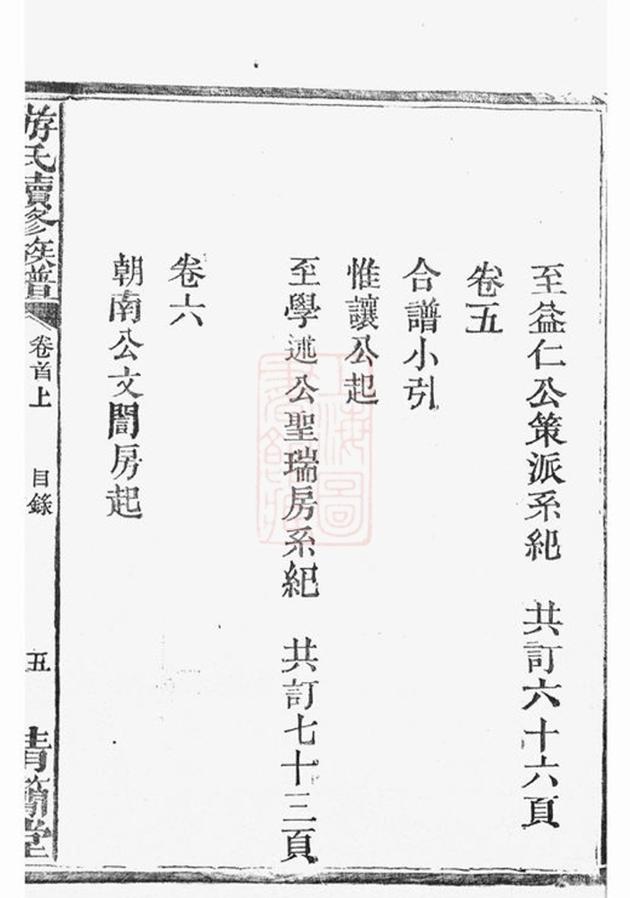 至益仁公策派系紀　共訂六十六頁
卷五
合譜小引
惟讓公起
至學述公聖瑞房系紀　共訂七十三頁
卷六
朝南公文誾房起
游氏續修族譜　卷首上　目錄　五　堂